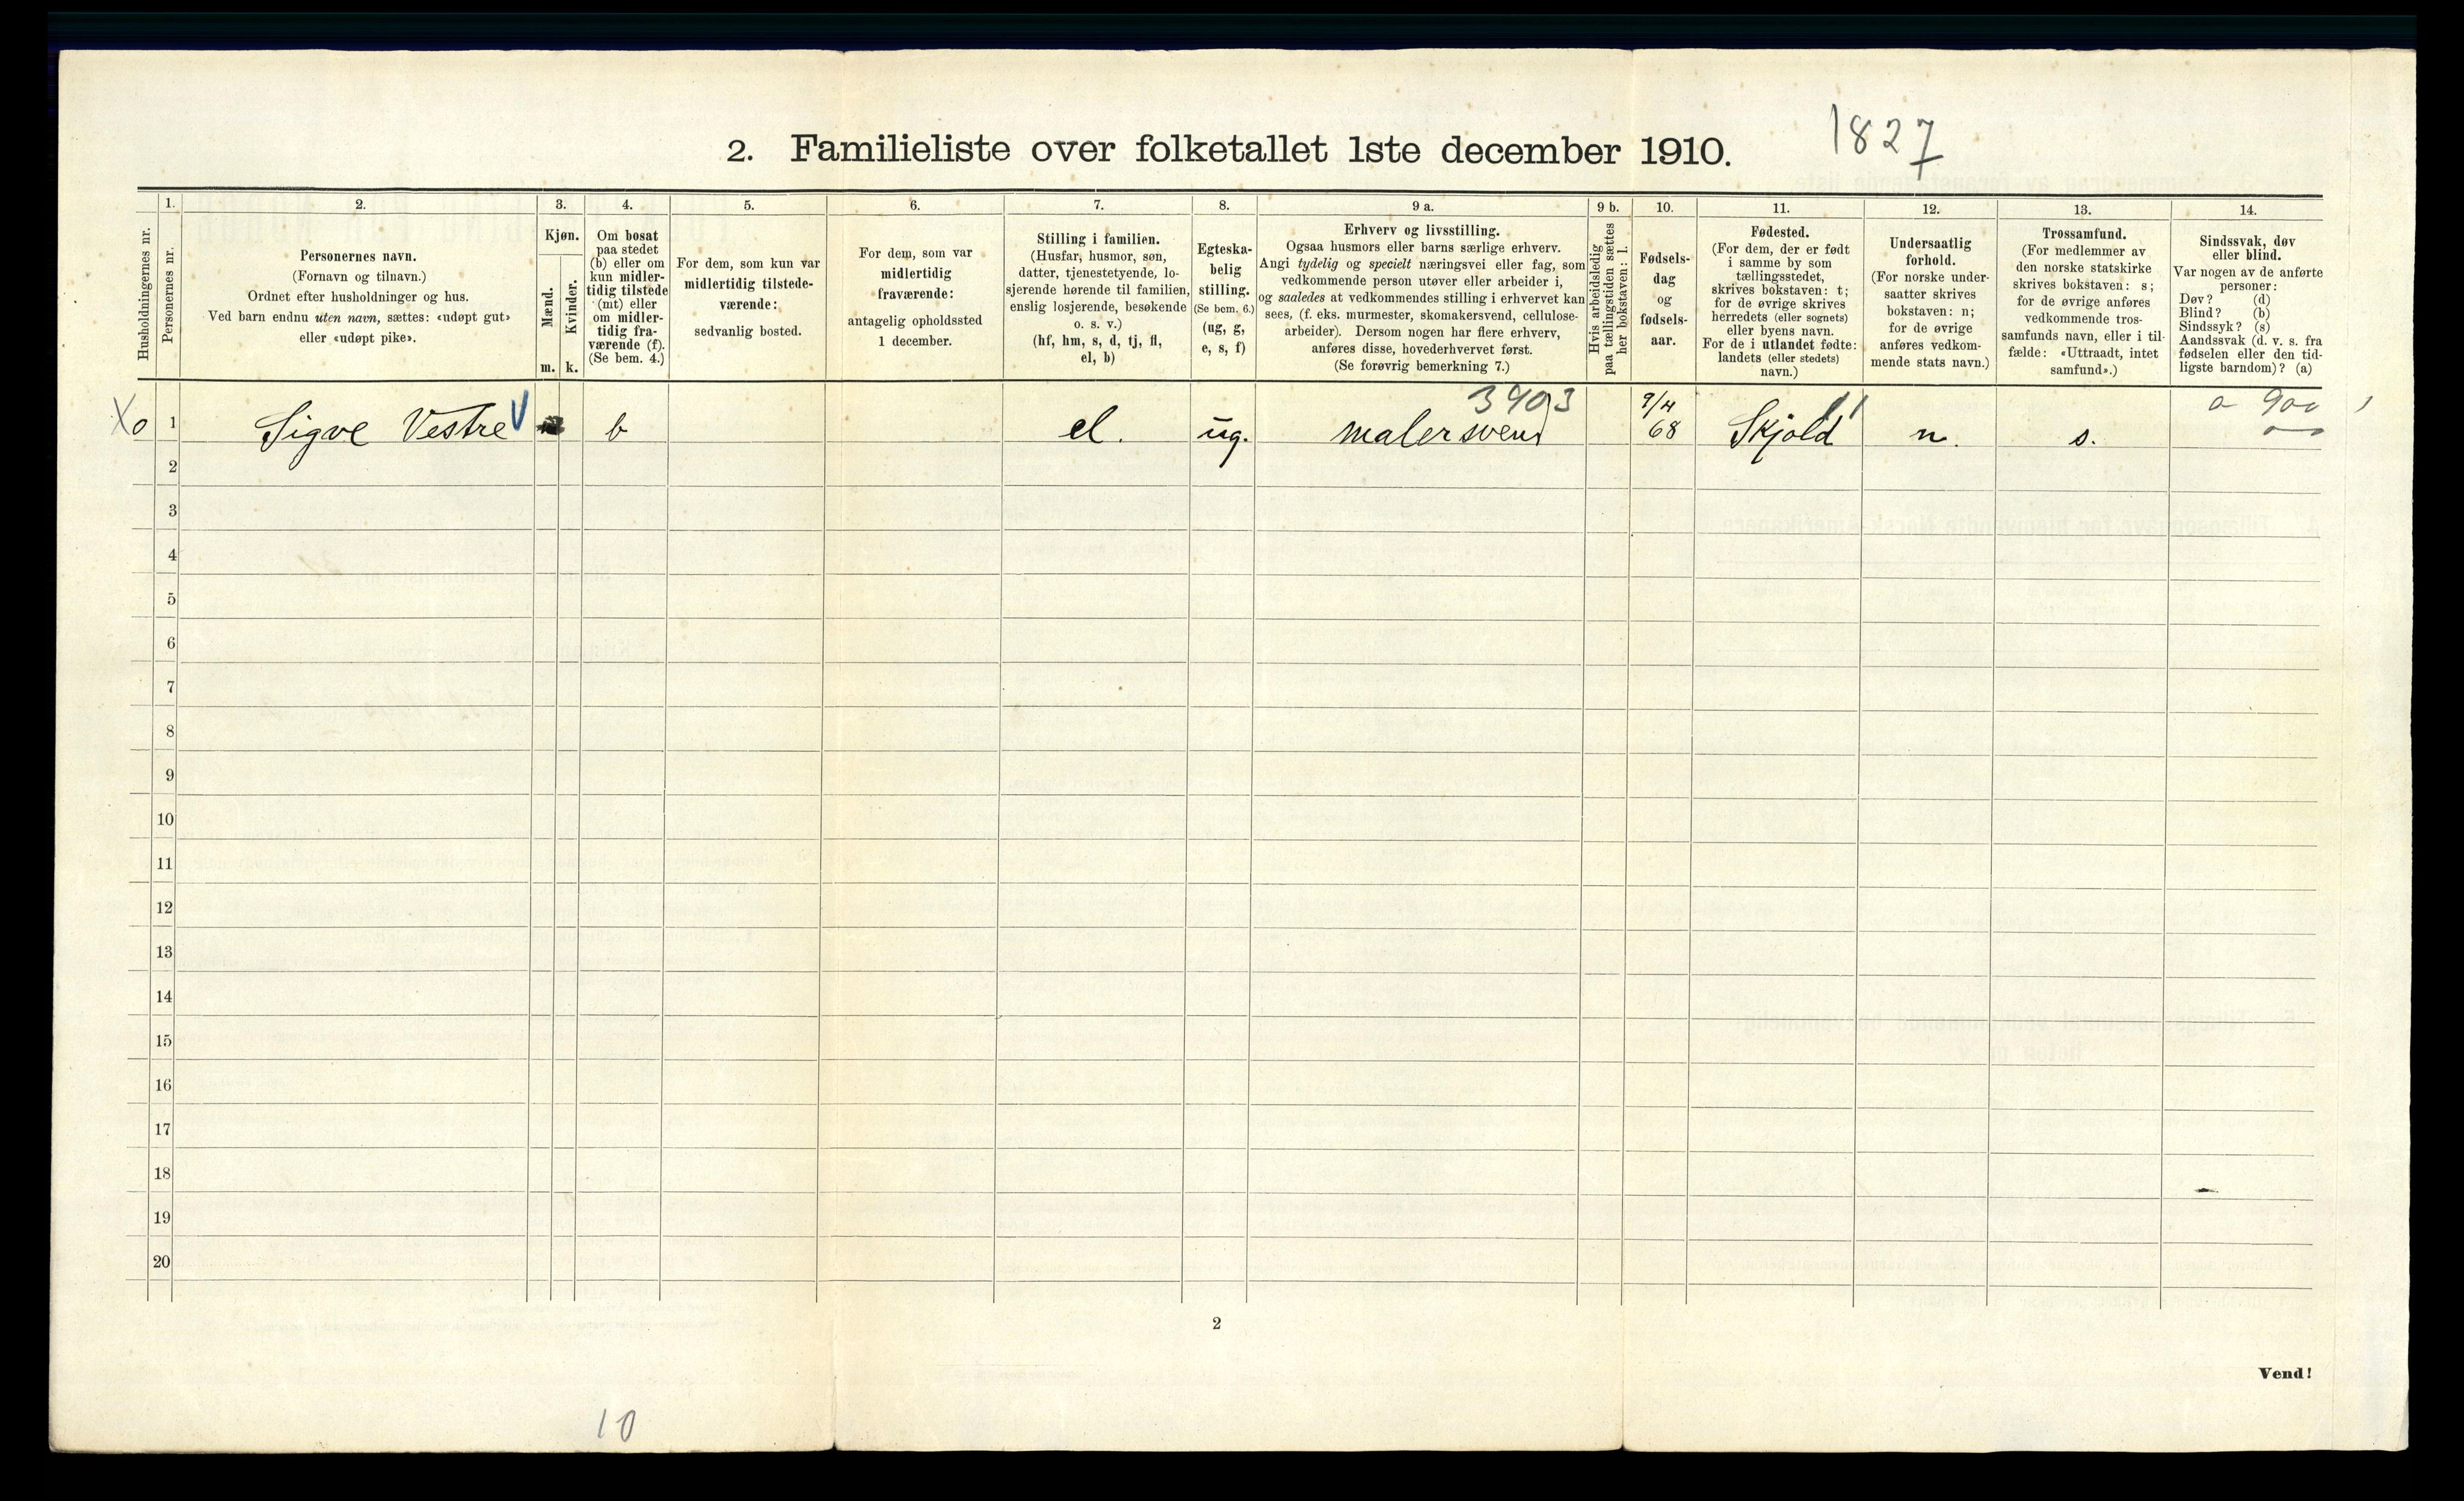 1827
2. Familieliste over folketallet 1ste december 1910.
Husholdningernes nr.
1.
Personernes nr.
2.
Personernes navn.
(Fornavn og tilnavn.)
Ordnet efter husholdninger og hus.
Ved barn endnu uten navn, sættes: «udøpt gut»
eller «udøpt pike».
3.
Kjøn.
Mænd.
Kvinder.
m. k.
4.
Om bosat
paa stedet
(b) eller om
kun midler-
tidig tilstede
(mt) eller
om midler-
tidig fra-
værende (f).
(Se bem. 4.)
5.
For dem, som kun var
midlertidig tilstede-
værende:
sedvanlig bosted.
6.
For dem, som var
midlertidig
fraværende:
antagelig opholdssted
1 december.
7.
Stilling i familien.
(Husfar, husmor, søn,
datter, tjenestetyende, lo-
sjerende hørende til familien,
enslig losjerende, besøkende
o. s. v.)
(hf, hm, s, d, tj, fl,
el, b)
8.
Egteska-
belig
stilling.
(Se bem. 6.)
(ug, g,
e, s, f)
9 a.
Erhverv og livsstilling.
Ogsaa husmors eller barns særlige erhverv.
Angi tydelig og specielt næringsvei eller fag, som
vedkommende person utøver eller arbeider i,
og saaledes at vedkommendes stilling i erhvervet kan
sees, (f. eks. murmester, skomakersvend, cellulose-
arbeider). Dersom nogen har flere erhverv,
anføres disse, hovederhvervet først.
(Se forøvrig bemerkning 7.)
9 b.
Hvis arbeidsledig
paa tællingstiden sættes
her bokstaven: l.
10.
Fødsels-
dag
og
fødsels-
aar.
11.
Fødested.
(For dem, der er født
i samme by som
tællingsstedet,
skrives bokstaven: t;
for de øvrige skrives
herredets (eller sognets)
eller byens navn.
For de i utlandet fødte:
landets (eller stedets)
navn.)
12.
Undersaatlig
forhold.
(For norske under-
saatter skrives
bokstaven: n;
for de øvrige
anføres vedkom-
mende stats navn.)
13.
Trossamfund.
(For medlemmer av
den norske statskirke
skrives bokstaven: s;
for de øvrige anføres
vedkommende tros-
samfunds navn, eller i til-
fælde: «Uttraadt, intet
samfund».)
14.
Sindssvak, døv
eller blind.
Var nogen av de anførte
personer:
Døv? (d)
Blind? (b)
Sindssyk? (s)
Aandssvak (d. v. s. fra
fødselen eller den tid-
ligste barndom)? (a)
3403
Xo 1 Sigve Vestre V b el. ug. malersvend 9/4 68 Skjold n. s.
2
3
4
5
6
7
8
9
10
11
12
13
14
15
16
17
18
19
20
2
Vend!
10